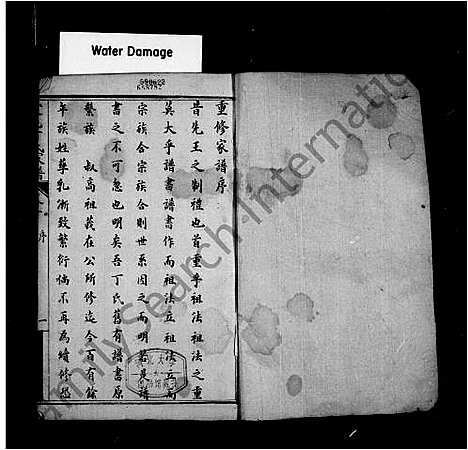 Water Damage
重修家譜序
昔先王之制禮也首重乎祖法祖法之重
莫大乎譜書譜書作而祖法立祖法立而
宗族合宗族合則世系因之而明若是譜
書之不可忽也明矣吾丁氏舊有譜書原
繫族 叔高祖義在公所修迄今百有餘
年族姓孳乳漸致繁衍倘不再為續修恐
序
一
FamilySearch International